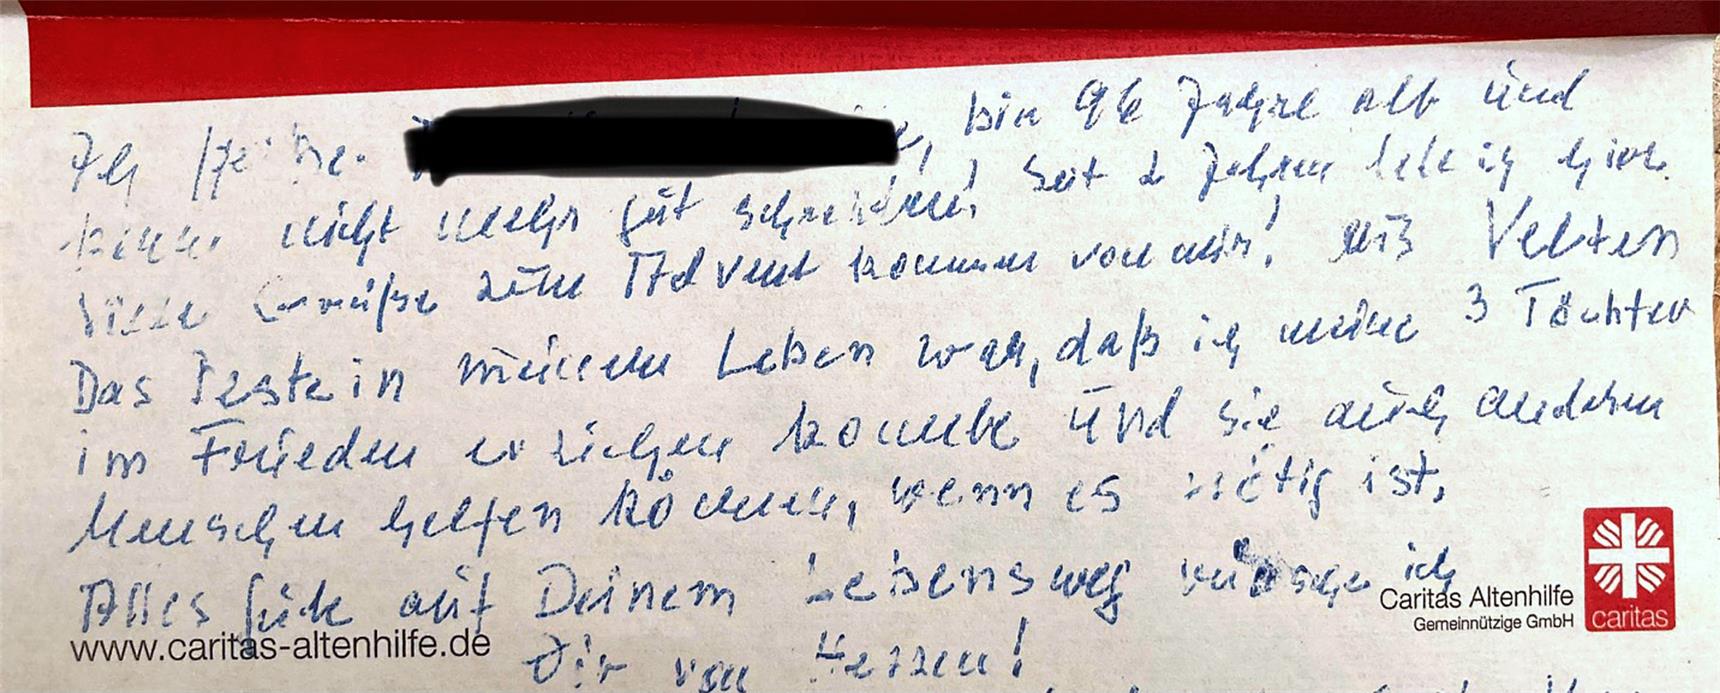 Ich heiße, bin 96 Jahre alt und
kann nicht mehr gut schreiben! Seit 2 Jahren lebe ich hier.
Viele Grüße zum Advent kommen von mir! aus Velten
Das Beste in meinem Leben war, daß ich meine 3 Töchter
im Frieden erziehen konnte und sie auch anderen
Menschen helfen können, wenn es nötig ist.
Alles Gute auf Deinem Lebensweg wünsche ich
Dir von Herzen!
www.caritas-altenhilfe.de
Caritas Altenhilfe
Gemeinnützige GmbH
caritas